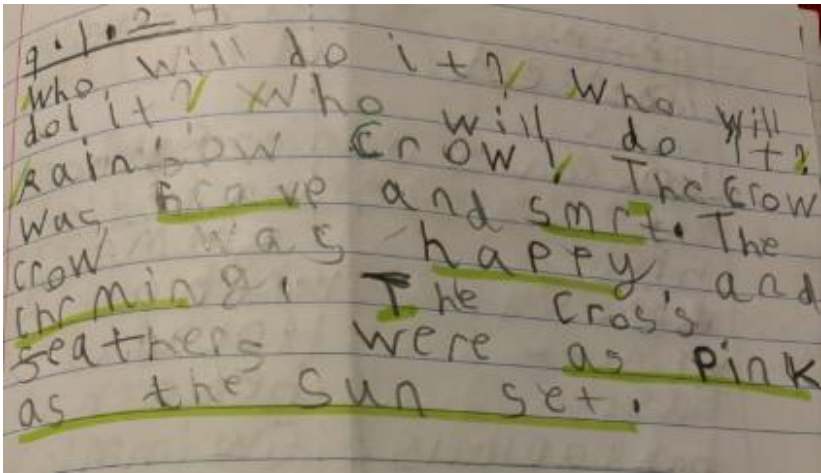 9.1.24
Who will do it? Who will
do it? Who will do it?
Rainbow Crow! The Crow
was brave and smrt. The
crow was happy and
chrming. The cros's
feathers were as pink
as the sun set.